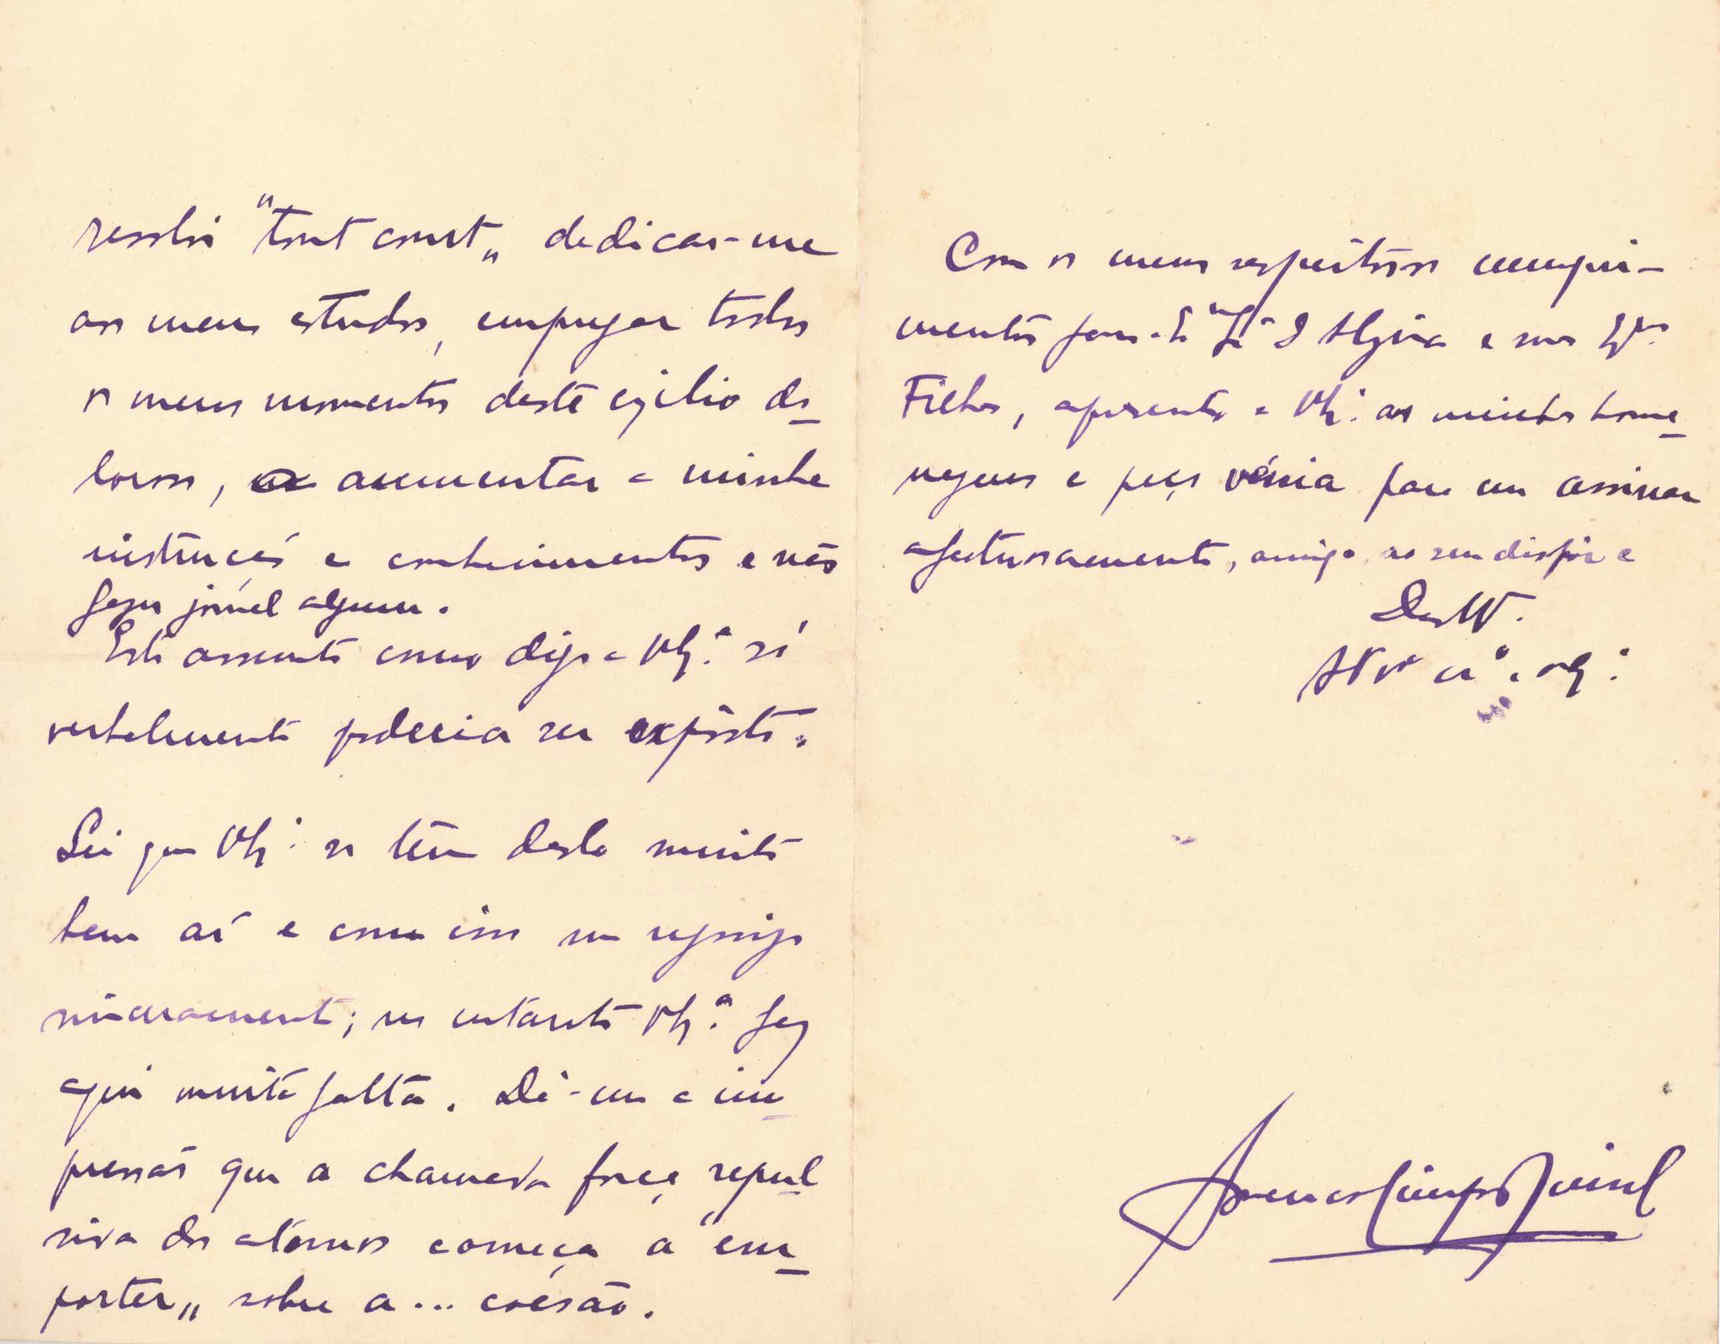 resolvi "tout court„ dedicar-me
aos meus estudos, empregar todos
os meus momentos deste exilio do-
loroso, a aumentar a minha
instrução e conhecimentos e não
fazer jornal algum.
Este assunto como digo a só
verbalmente poderia ser expôsto.
Sei que se tem dado muito
bem aí e com isso me regosijo
sinceramente; no entanto faz
aqui muita falta. Dá-me a im-
pressão que a chamada força repul-
siva dos atomos começa a "em-
porter„ sobre a... coesão.
Com os meus respeitosos cumpri-
mentos para a e seus
Filhos, apresento a as minhas home-
nagens e peço vénia para me assinar
afectuosamente, amigo ao seu dispôr e